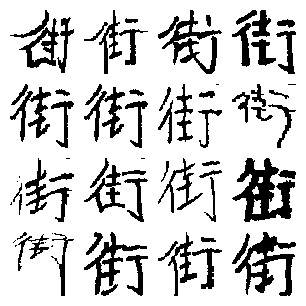 街街街街
街街街街
街街街街
街街街街